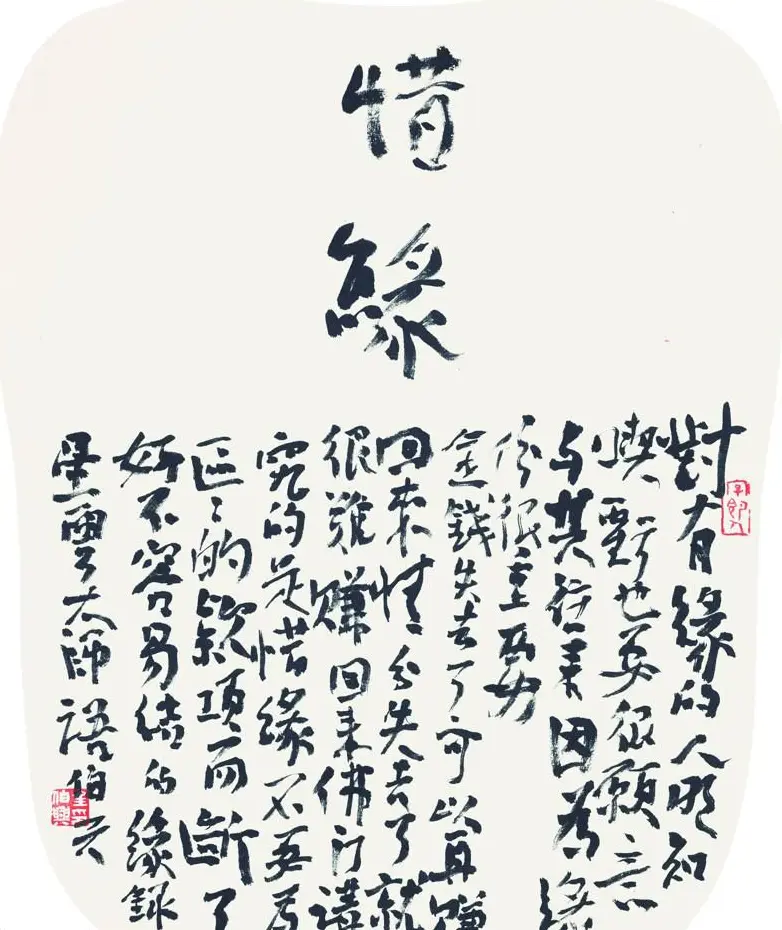 惜緣
對有緣的人明知
喫虧也要很願意
與其往來因為緣
份很重要
金錢失去了可以再賺
回來情分失去了就
很難賺回來佛門講
究的是惜緣不要為
區々的款項而斷了
好不容易結的緣錄
星雲大師語伯兴
伯興